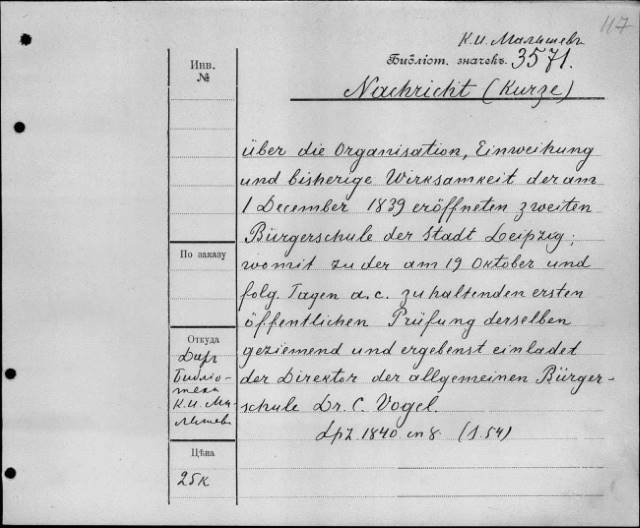 117
К.И. Малышевъ
Библіот. значекъ. 3571.
Nachricht (Kurze)
Инв.
№
über die Organisation, Einweihung
und bisherige Wirksamkeit der am
1 December 1839 eröffneten zweiten
Bürgerschule der Stadt Leipzig;
womit zu der am 19 Oktober und
folg. Tagen a.c. zu haltenden ersten
öffentlichen Prüfung derselben
geziemend und ergebenst einladet
der Direktor der allgemeinen Bürger-
schule Dr. C. Vogel.
Lpz. 1840 in 8. (S. 54)
По заказу
Откуда
Даръ
Библіо-
теки
К.И. Ма-
лышева
Цѣна
25к